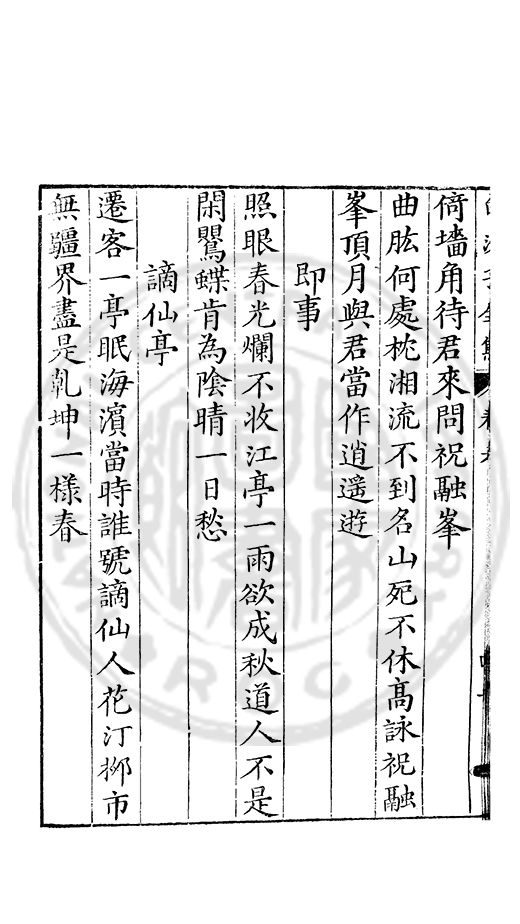 倚墻角待君來問祝融峯
曲肱何處枕湘流不到名山死不休高詠祝融
峯頂月與君當作逍遥遊
即事
照眼春光爛不收江亭一雨欲成秋道人不是
閑鸎蝶肯為陰晴一日愁
謫仙亭
遷客一亭眠海濱當時誰號謫仙人花汀柳市
無疆界盡是乹坤一樣春